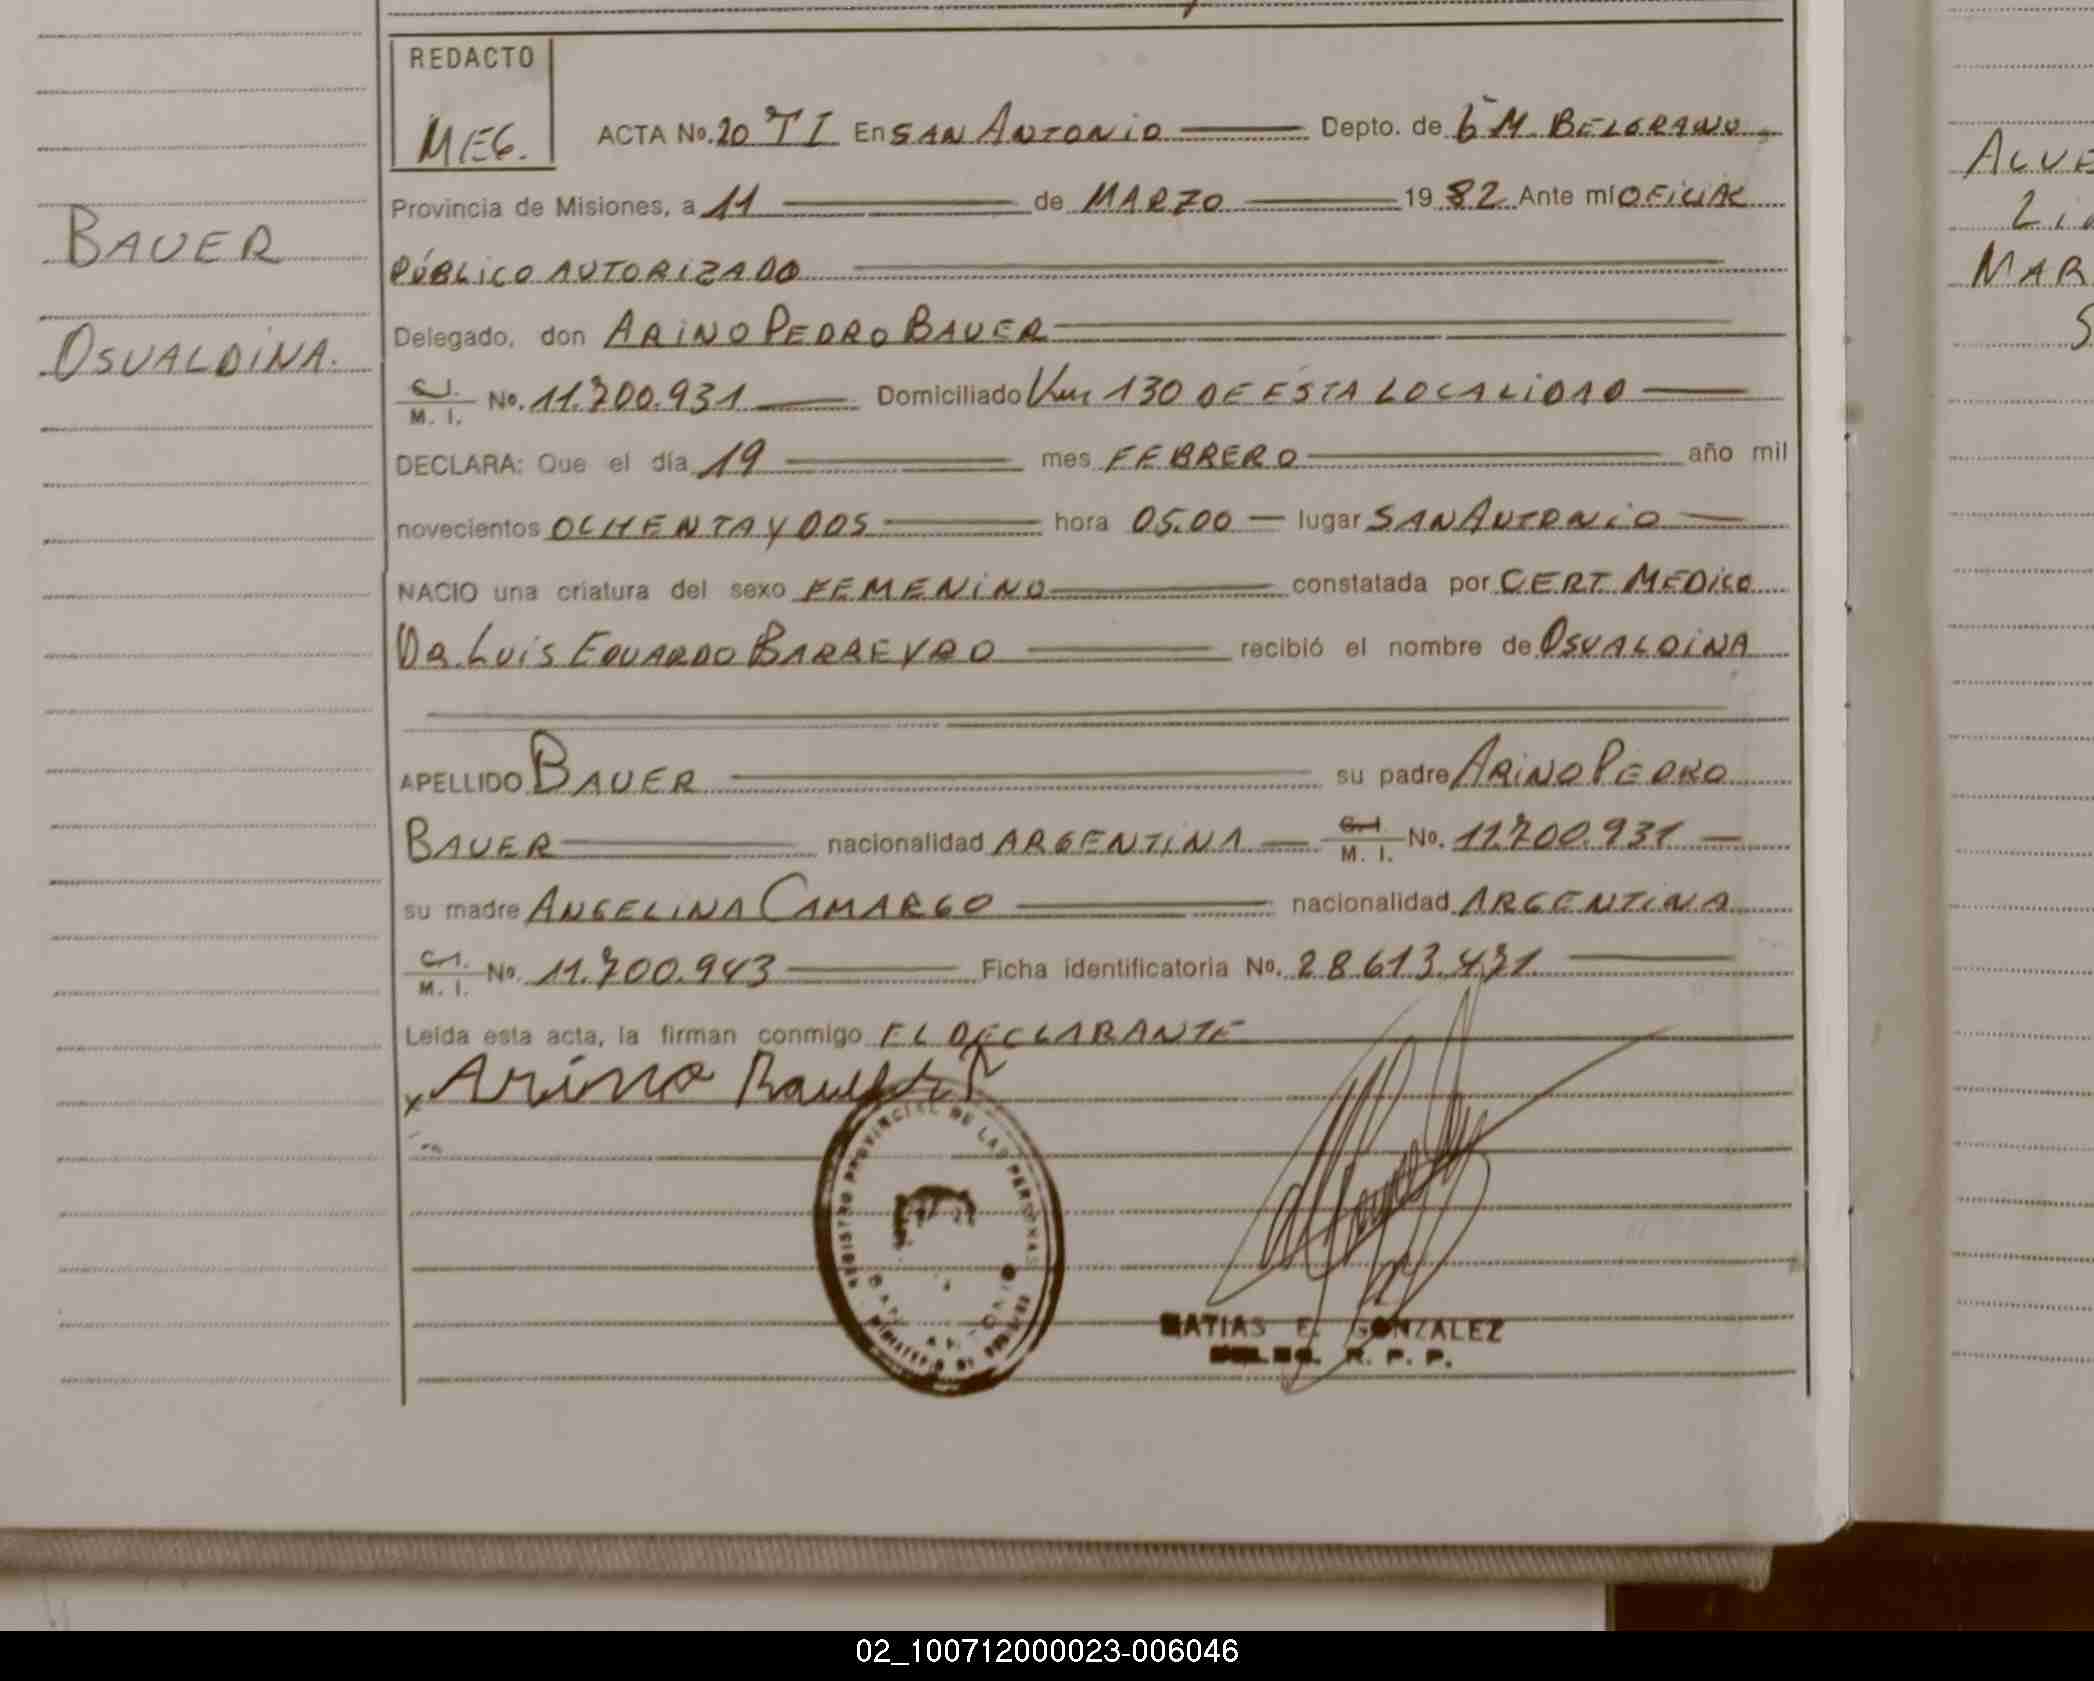 REDACTO
MEG.
ACTA No. 20 T I En SAN ANTONIO Depto. de G M. BELGRANO,
Provincia de Misiones, a 11 de MARZO 1982 Ante mí OFICIAL
PÚBLICO AUTORIZADO
Delegado, don ARINO PEDRO BAUER
C.I.
M. I. No. 11.700.931 Domiciliado Km 130 DE ESTA LOCALIDAD
DECLARA: Que el día 19 mes FEBRERO año mil
novecientos OCHENTA Y DOS hora 05.00 lugar SAN ANTONIO
NACIO una criatura del sexo FEMENINO constatada por CERT. MEDICO
DR. LUIS EDUARDO BARREYRO recibió el nombre de OSVALDINA
APELLIDO BAUER su padre ARINO PEDRO
BAUER nacionalidad ARGENTINA C.I.
M. I. No. 11.700.931
su madre ANGELINA CAMARGO nacionalidad ARGENTINA
C.I.
M. I. No. 11.700.943 Ficha identificatoria No. 28.613.471
Leída esta acta, la firman conmigo EL DECLARANTE
x Arino Bauer
REGISTRO PROVINCIAL DE LAS PERSONAS
MATIAS E. GONZALEZ
DELEG. R. P. P.
BAUER
OSVALDINA.
ALVE
MAR
S
02_100712000023-006046